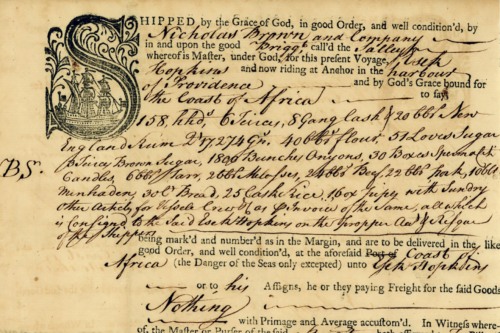 SHIPPED, by the Grace of God, in good Order, and well condition'd, by
Nicholas Brown and Company
in and upon the good Briggt call'd the Sally
whereof is Master, under God, for this present Voyage, Esek
Hopkins and now riding at Anchor in the harbour
of Providence and by God's Grace bound for
to say
the Coast of Africa
158 hhds 6 Tierces, 8 Gang Cask & 20 bbls New
England Rum 17274 Gn. 40 bbs flour, 51 Loves Sugar
Brown Sugar, 1800 Bunches Onyons, 30 Boxes Spermaseti
Candles, 6 bbs Tarr, 2 bbs 22 bbs Pork, 10 bbs
Minhadens, 30 C Bread, 25 Casks Rice, 16 ox with Sundry
BS.
Other of the Same, all which
is Consignd to the Said Esek Hopkins on the Propper & Risque
of the Shippers
being mark'd and number'd as in the Margin, and are to be delivered in the like
good Order, and well condition'd, at the aforesaid Port of Coast of
Africa (the Danger of the Seas only excepted) unto Esek Hopkins
or to his Assigns, he or they paying Freight for the said Goods
Nothing
with Primage and Average accustom'd. In Witness where-
of, the Master or Purser of the said